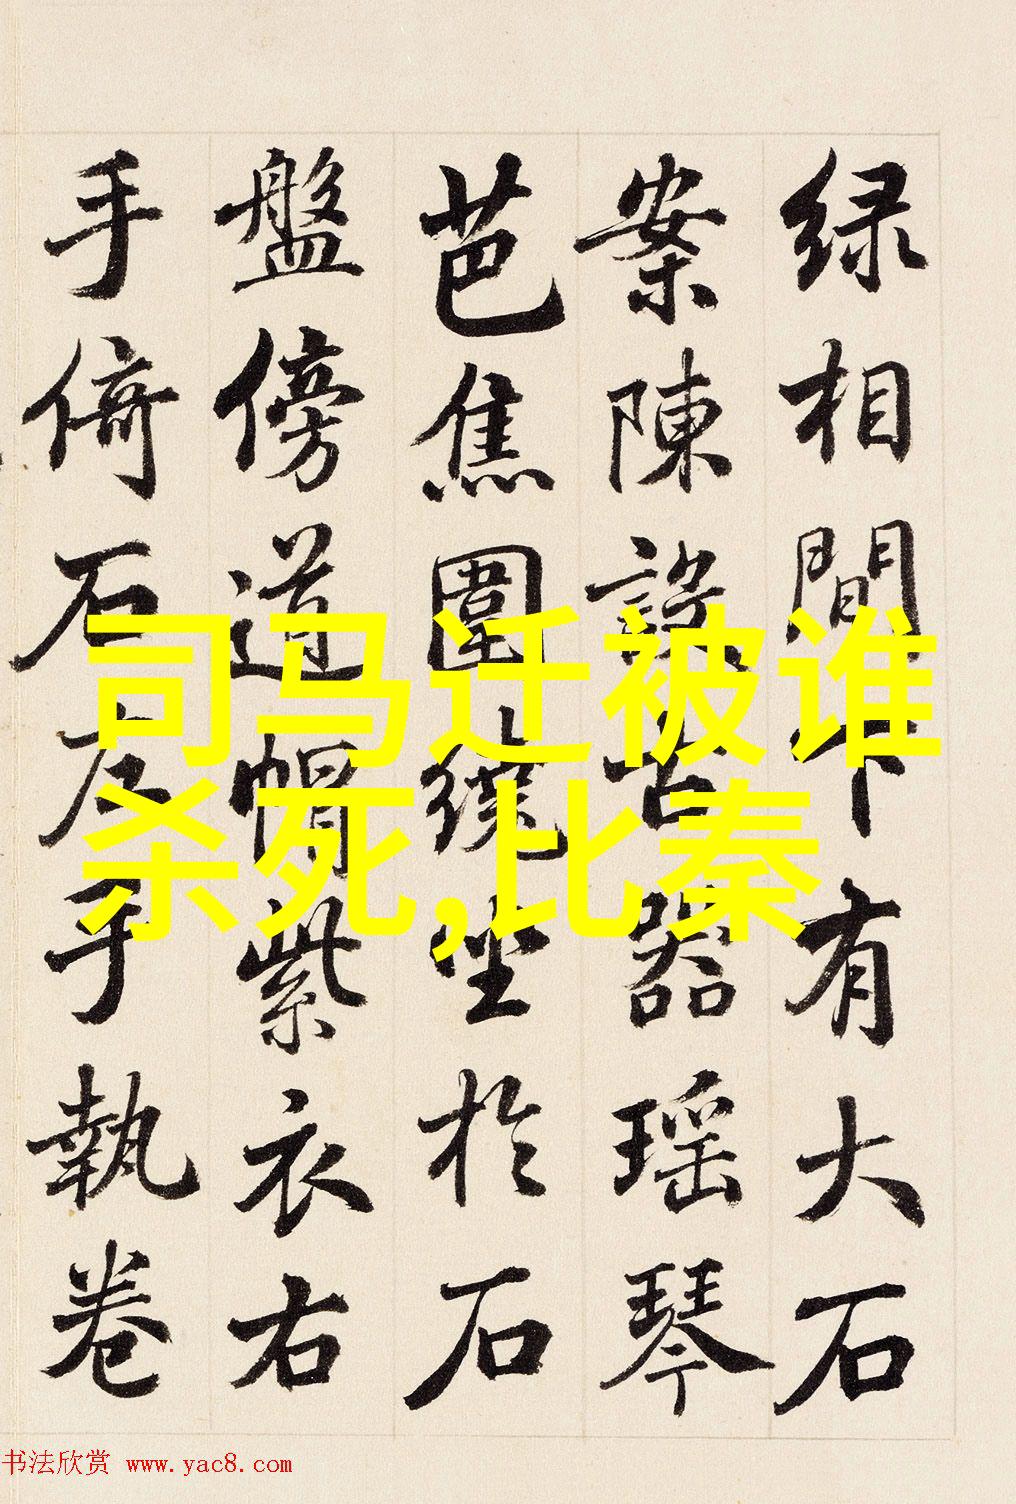 绿相間下有大石
案陳設古器瑶琴
芭焦圍繞坐於石
盤傍道帽紫衣右
手倚石左手執卷
司马迁被谁
杀死,比秦
书法欣赏 www.yac8.com